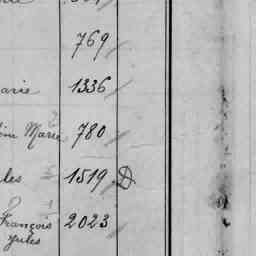 769
arie 1336
Marie 780
les 1519 D
François 2023
Jules